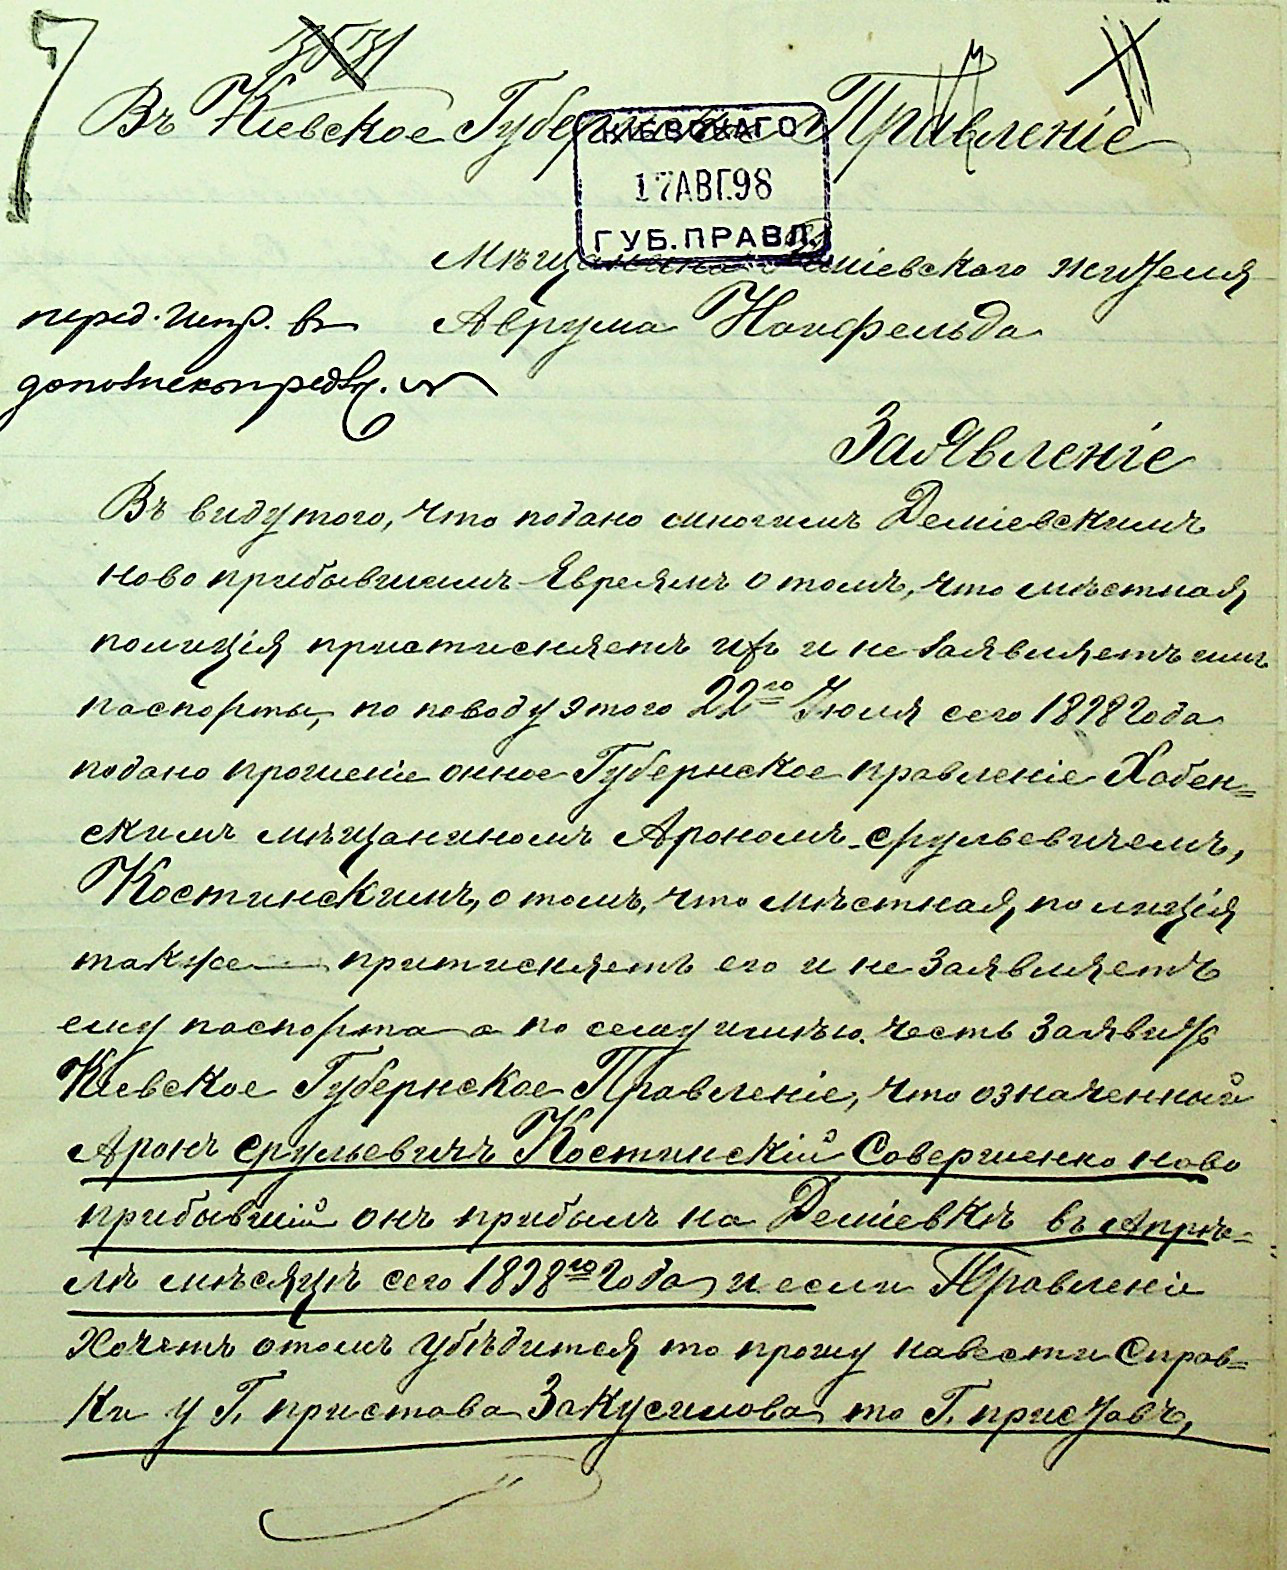 7
Въ Кіевское Губернское Правленіе
КІЕВСКАГО
17 АВГ. 98
ГУБ. ПРАВЛ.
Мѣщанина Деміевскаго жителя
Аврума Найфельда
перед. въ
Заявленіе
Въ виду того, что подано многимъ Деміевскимъ
ново прибывшимъ Евреямъ о томъ, что мѣстная
полиція пристисняетъ ихъ и не заявляетъ имъ
паспорты, по поводу этого 22го Іюля сего 1898 года
подано прошеніе онное Губернское правленіе Хабен=
скимъ мѣщаниномъ Арономъ Срульевичемъ,
Костинскимъ, о томъ, что мѣстная полиція
также притисняетъ его и не заявляетъ
ему паспорта а по сему имѣю честь заявить
Кіевское Губернское Правленіе, что означенный
Аронъ Срульевичъ Костинскій Совершенно ново
прибывшій онъ прибылъ на Деміевкѣ въ Апрѣ=
лѣ мѣсяцѣ сего 1898го года, и если Правленіе
хочетъ отомъ убѣдится то прошу навести Справ=
ки у Г. пристава Закусилова то Г. приставъ,